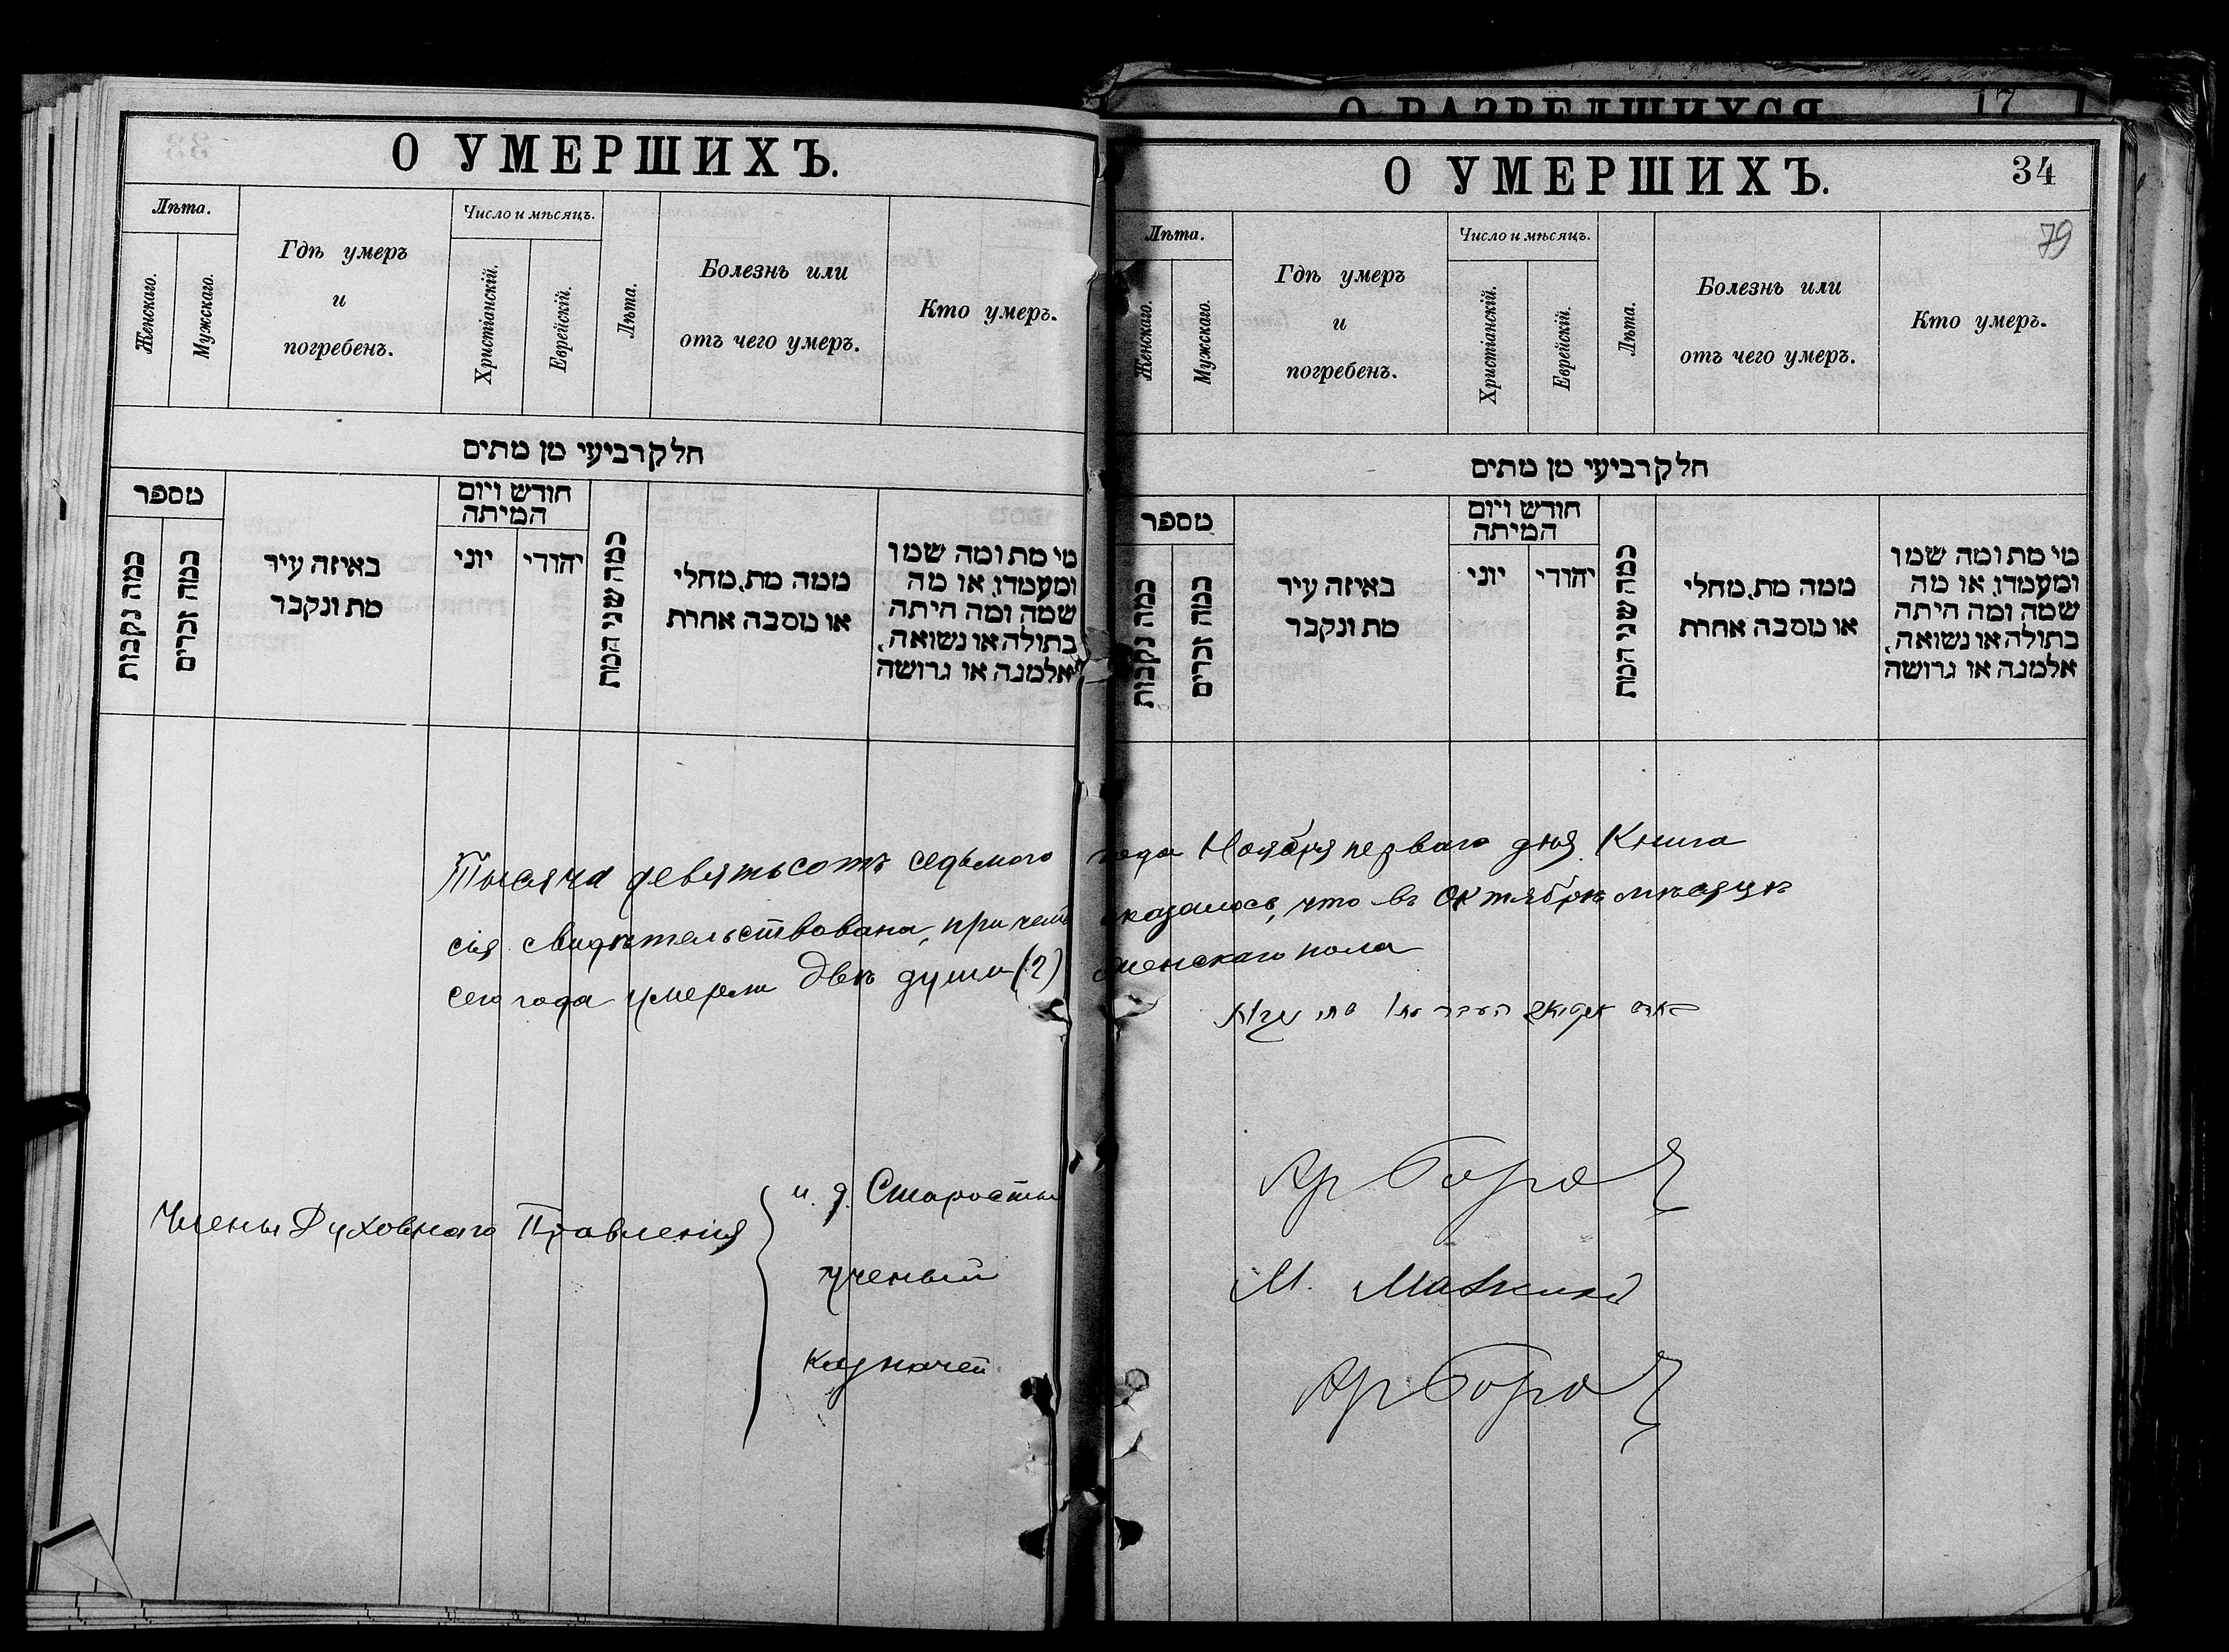 О РАЗВЕДШИХСЯ 17
О УМЕРШИХЪ.
Лѣта.
Женскаго.
Мужскаго.
Гдѣ умеръ
и
погребенъ.
Число и мѣсяцъ.
Христіанскій.
Еврейскій.
Лѣта.
Болезнь или
отъ чего умеръ.
Кто умеръ.
חלק רביעי מן מתים
מספר
כמה נקבות
כמה זכרים
באיזה עיר
מת ונקבר
חודש ויום
המיתה
יוני
יהודי
כמה שני המת
ממה מת, מחלי
או מסבה אחרת
מי מת ומה שמו
ומעמדו, או מה
שמה ומה היתה
בתולה או נשואה,
אלמנה או גרושה
О УМЕРШИХЪ.
34
79
Лѣта.
Женскаго.
Мужскаго.
Гдѣ умеръ
и
погребенъ.
Число и мѣсяцъ.
Христіанскій.
Еврейскій.
Лѣта.
Болезнь или
отъ чего умеръ.
Кто умеръ.
חלק רביעי מן מתים
מספר
כמה נקבות
כמה זכרים
באיזה עיר
מת ונקבר
חודש ויום
המיתה
יוני
יהודי
כמה שני המת
ממה מת, מחלי
או מסבה אחרת
מי מת ומה שמו
ומעמדו, או מה
שמה ומה היתה
בתולה או נשואה,
אלמנה או גרושה
Тысяча девятьсотъ седьмого года Ноября перваго дня Книга
сія свидѣтельствована, при чемъ оказалось, что въ Октябрѣ мѣсяцѣ
сего года умерли двѣ души (2) женскаго пола
Члены Духовнаго Правленія
и. д. Старосты
ученый
М.
казначей